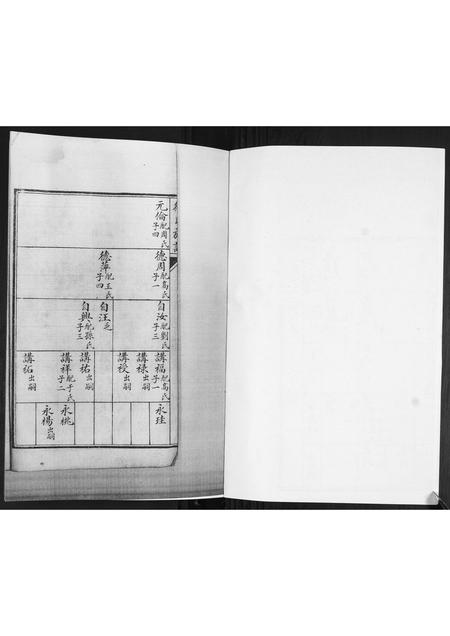 元倫 配周氏 子四
德周 配高氏 子一
德萍 配王氏 子四
自汝 配劉氏 子三
自汪 乏
自興 配孫氏 子三
講福 配高氏 子一
講祿 出嗣
講授 出嗣
講祐 出嗣
講祥 配于氏 子二
講祐 出嗣
永珪
永桃
永楊 出嗣